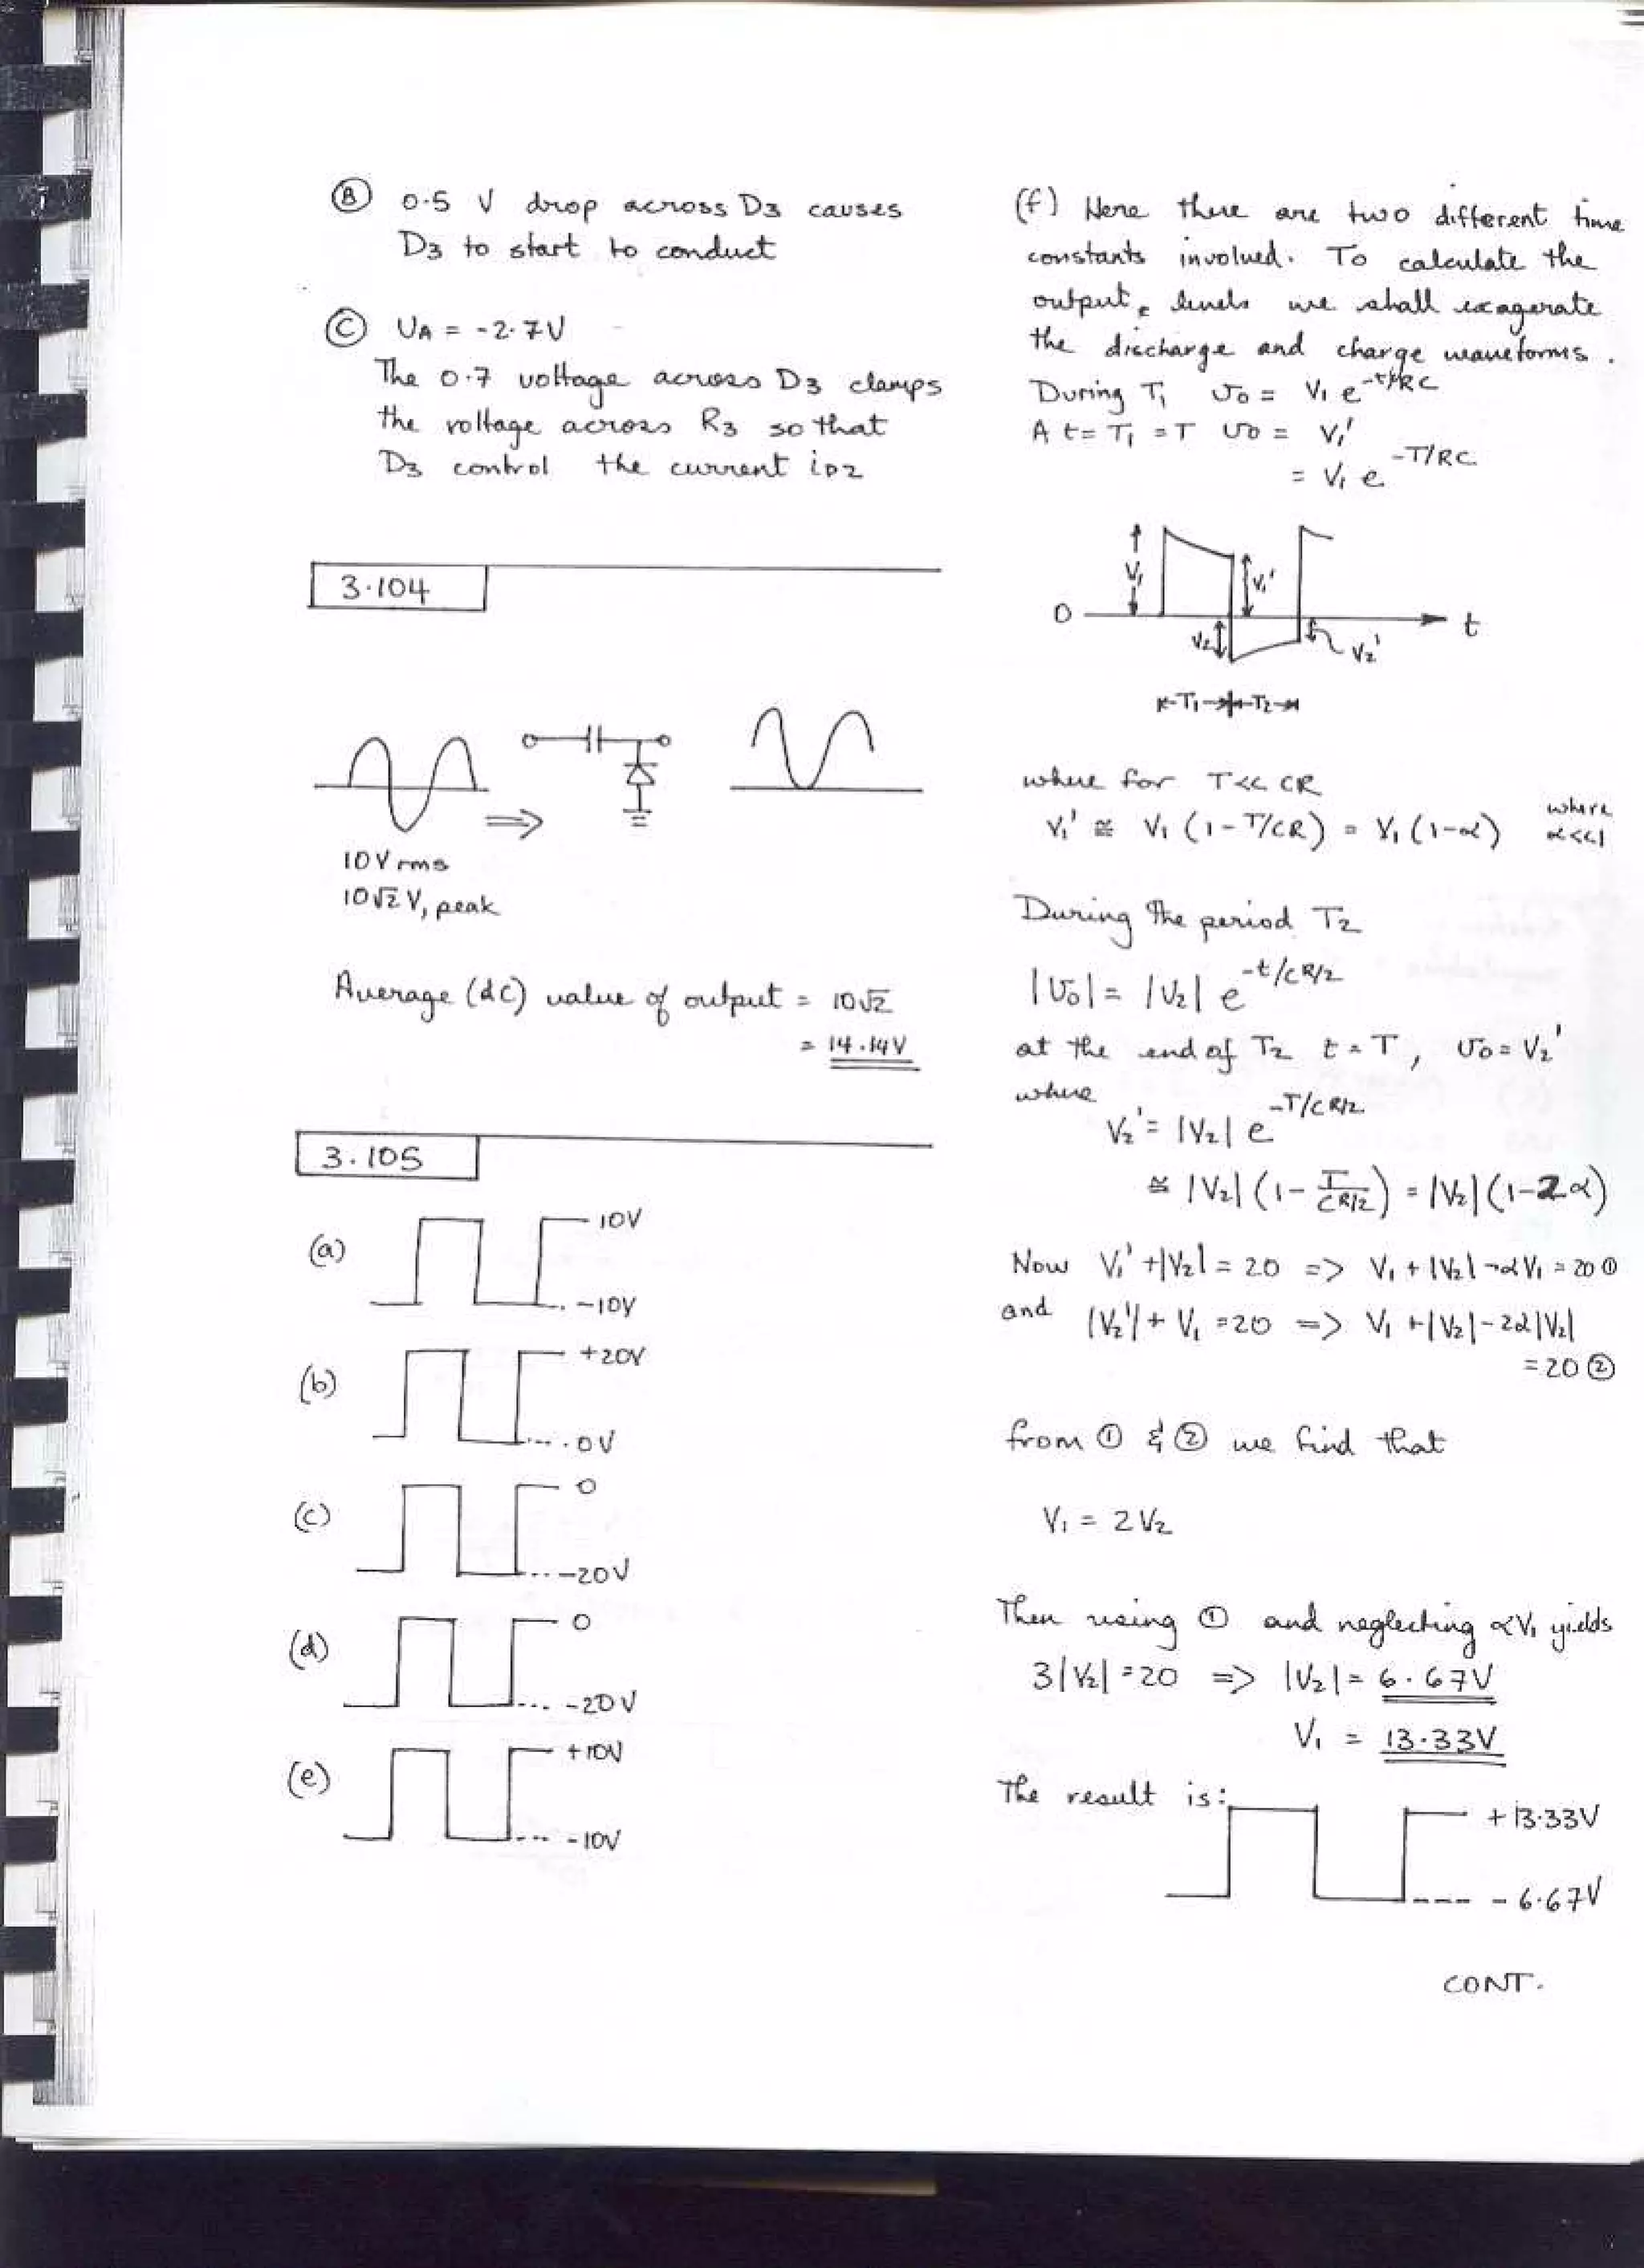 Ⓑ 0.5 V drop across D3 causes
D3 to start to conduct
Ⓒ UA = -2.7V
The 0.7 voltage across D3 clamps
the voltage across R3 so that
D3 control the current iD2
3.104
10V rms
10√2 V, peak
Average (dc) value of output = 10√2
= 14.14V
3.105
(a)
10V
-10V
(b)
+20V
0V
(c)
0
-20V
(d)
0
-20V
(e)
+10V
-10V
(f) Here there are two different time
constants involved. To calculate the
output levels we shall exagerate
the discharge and charge waveforms.
During T1 υo = V1 e^-t/RC
A t= T1 =T υo = V1'
= V1 e^-T/RC
V1
V1'
0
t
V2
V2'
T1 T2
where for T<< CR
V1' ≅ V1 (1 - T/CR) = V1 (1-α) where α<<1
During the period T2
|υo| = |V2| e^-t/CR/2
at the end of T2 t = T, υo = V2'
where
V2' = |V2| e^-T/CR/2
≅ |V2| (1 - T/CR/2) = |V2| (1-2α)
Now V1' +|V2| = 20 => V1 + |V2| -αV1 = 20 ①
and |V2'| + V1 = 20 => V1 +|V2| - 2α|V2|
= 20 ②
from ① & ② we find that
V1 = 2V2
Then using ① and neglecting αV1 yields
3|V2| = 20 => |V2| = 6.67V
V1 = 13.33V
The result is:
+13.33V
-6.67V
CONT.